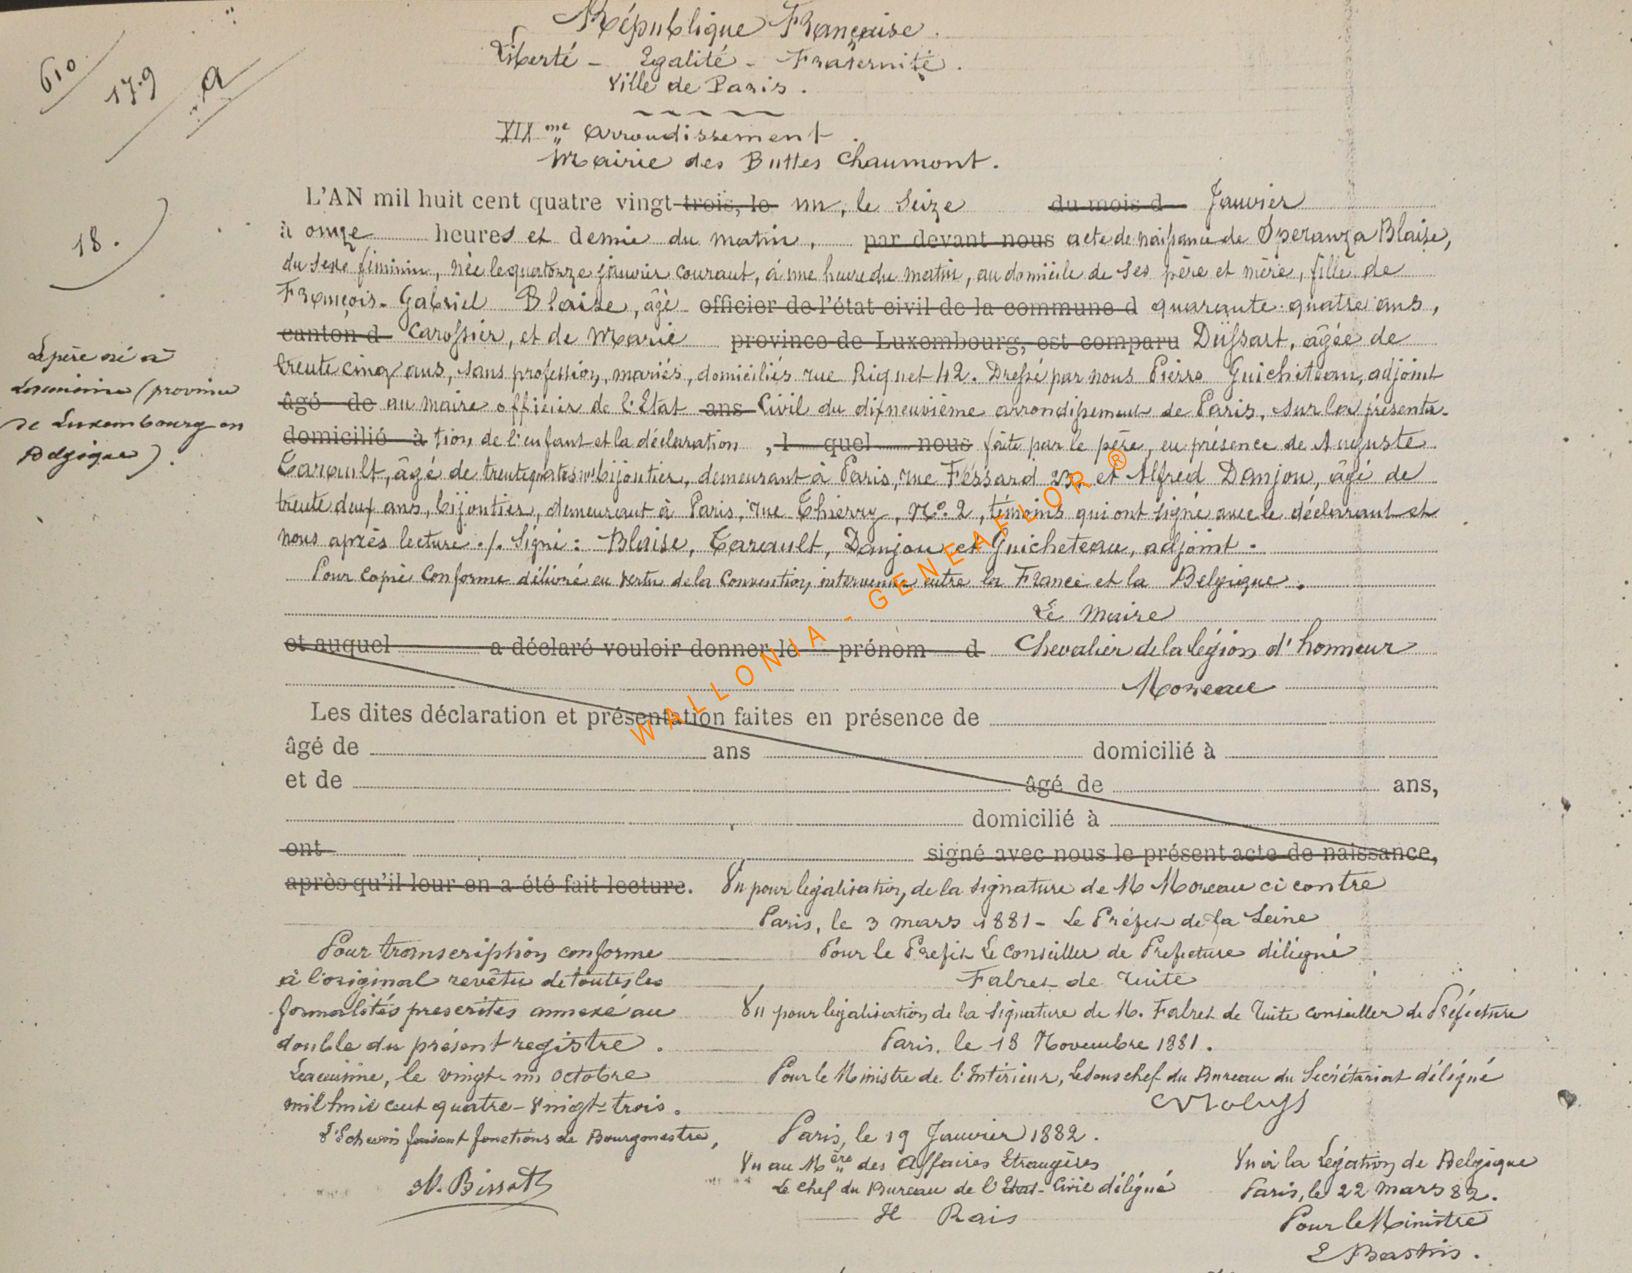 République Française.
Liberté - Egalité - Fraternité.
Ville de Paris.
XIX me arrondissement.
Mairie des Buttes Chaumont.
610
179
a
18.
Le père né à
Lacuisine (province
de Luxembourg en
Belgique).
L'AN mil huit cent quatre vingt trois, le un, le Seize du mois d Janvier
à onze heures et demie du matin, par devant nous acte de naissance de Speranza Blaise,
du sexe féminin, née le quatorze janvier courant, à une heure du matin, au domicile de ses père et mère, fille de
François-Gabriel Blaise, âgé officier de l'état civil de la commune d quarante-quatre ans,
canton d Carossier, et de Marie province de Luxembourg, est comparu Dussart, âgée de
trente cinq ans, sans profession, mariés, domiciliés rue Riquet 42. Dressé par nous Pierre Guicheteau, adjoint
âgé de au maire officier de l'Etat ans Civil du dixneuvième arrondissement de Paris, sur la présenta-
domicilié à tion de l'enfant et la déclaration, l quel nous faite par le père, en présence de Auguste
Tarault, âgé de trente quatre ans bijoutier, demeurant à Paris, rue Fessard 23, et Alfred Danjou, âgé de
trente deux ans, bijoutier, demeurant à Paris, rue Thierry, No. 2, témoins qui ont signé avec le déclarant et
nous après lecture ./. Signé : Blaise, Tarault, Danjou et Guicheteau, adjoint.
Pour copie conforme délivré en vertu de la Convention intervenue entre la France et la Belgique.
Le Maire
et auquel a déclaré vouloir donner le prénom d Chevalier de la légion d'honneur
Moreau
Les dites déclaration et présentation faites en présence de
âgé de ans domicilié à
et de âgé de ans,
domicilié à
ont signé avec nous le présent acte de naissance,
après qu'il leur en a été fait lecture. Vu pour légalisation, de la signature de M Moreau ci contre
Paris, le 3 mars 1881 - Le Préfet de la Seine
Pour le Prefet Le Conseiller de Prefecture délégué
Falret de Tuite
Pour transcription conforme
à l'original revêtu de toutes les
formalités prescrites annexé au
double du présent registre.
Lacuisine, le vingt-un octobre
mil huit cent quatre-vingt-trois.
L'Echevin faisant fonctions de Bourgmestre,
Vu pour légalisation de la signature de M. Falret de Tuite conseiller de Préfecture
Paris, le 18 Novembre 1881.
Pour le Ministre de l'Intérieur, Le sous chef du Bureau du Secrétariat délégué
Paris, le 19 Janvier 1882.
Vu au Mère des Affaires Etrangères
Le Chef du Bureau de l'Etat-Civil délégué
H Rais
Vu à la Légation de Belgique
Paris, le 22 mars 82.
Pour le Ministre
WALLONIA - GENEAFLOR ®